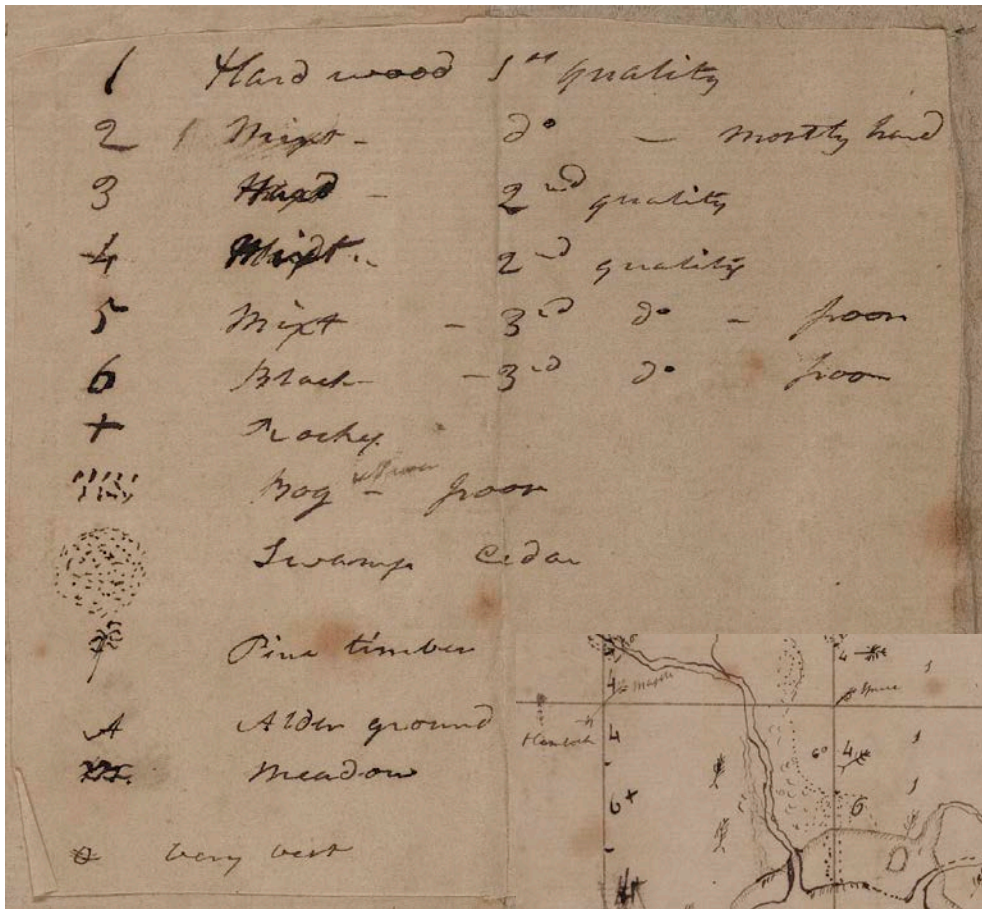 1 Hard wood 1st quality
2 1 Mixt - do - mostly hard
3 Hard - 2nd quality
4 Mixt - 2nd quality
5 Mixt - 3rd do - poor
6 Black - 3rd do poor
+ Rocky
Bog - poor
Swamp Cedar
Pine timber
A Alder ground
Meadow
very best
4 1
4 Maple
Spruce
Hemlock
4 60 4 1
6+ 6 1